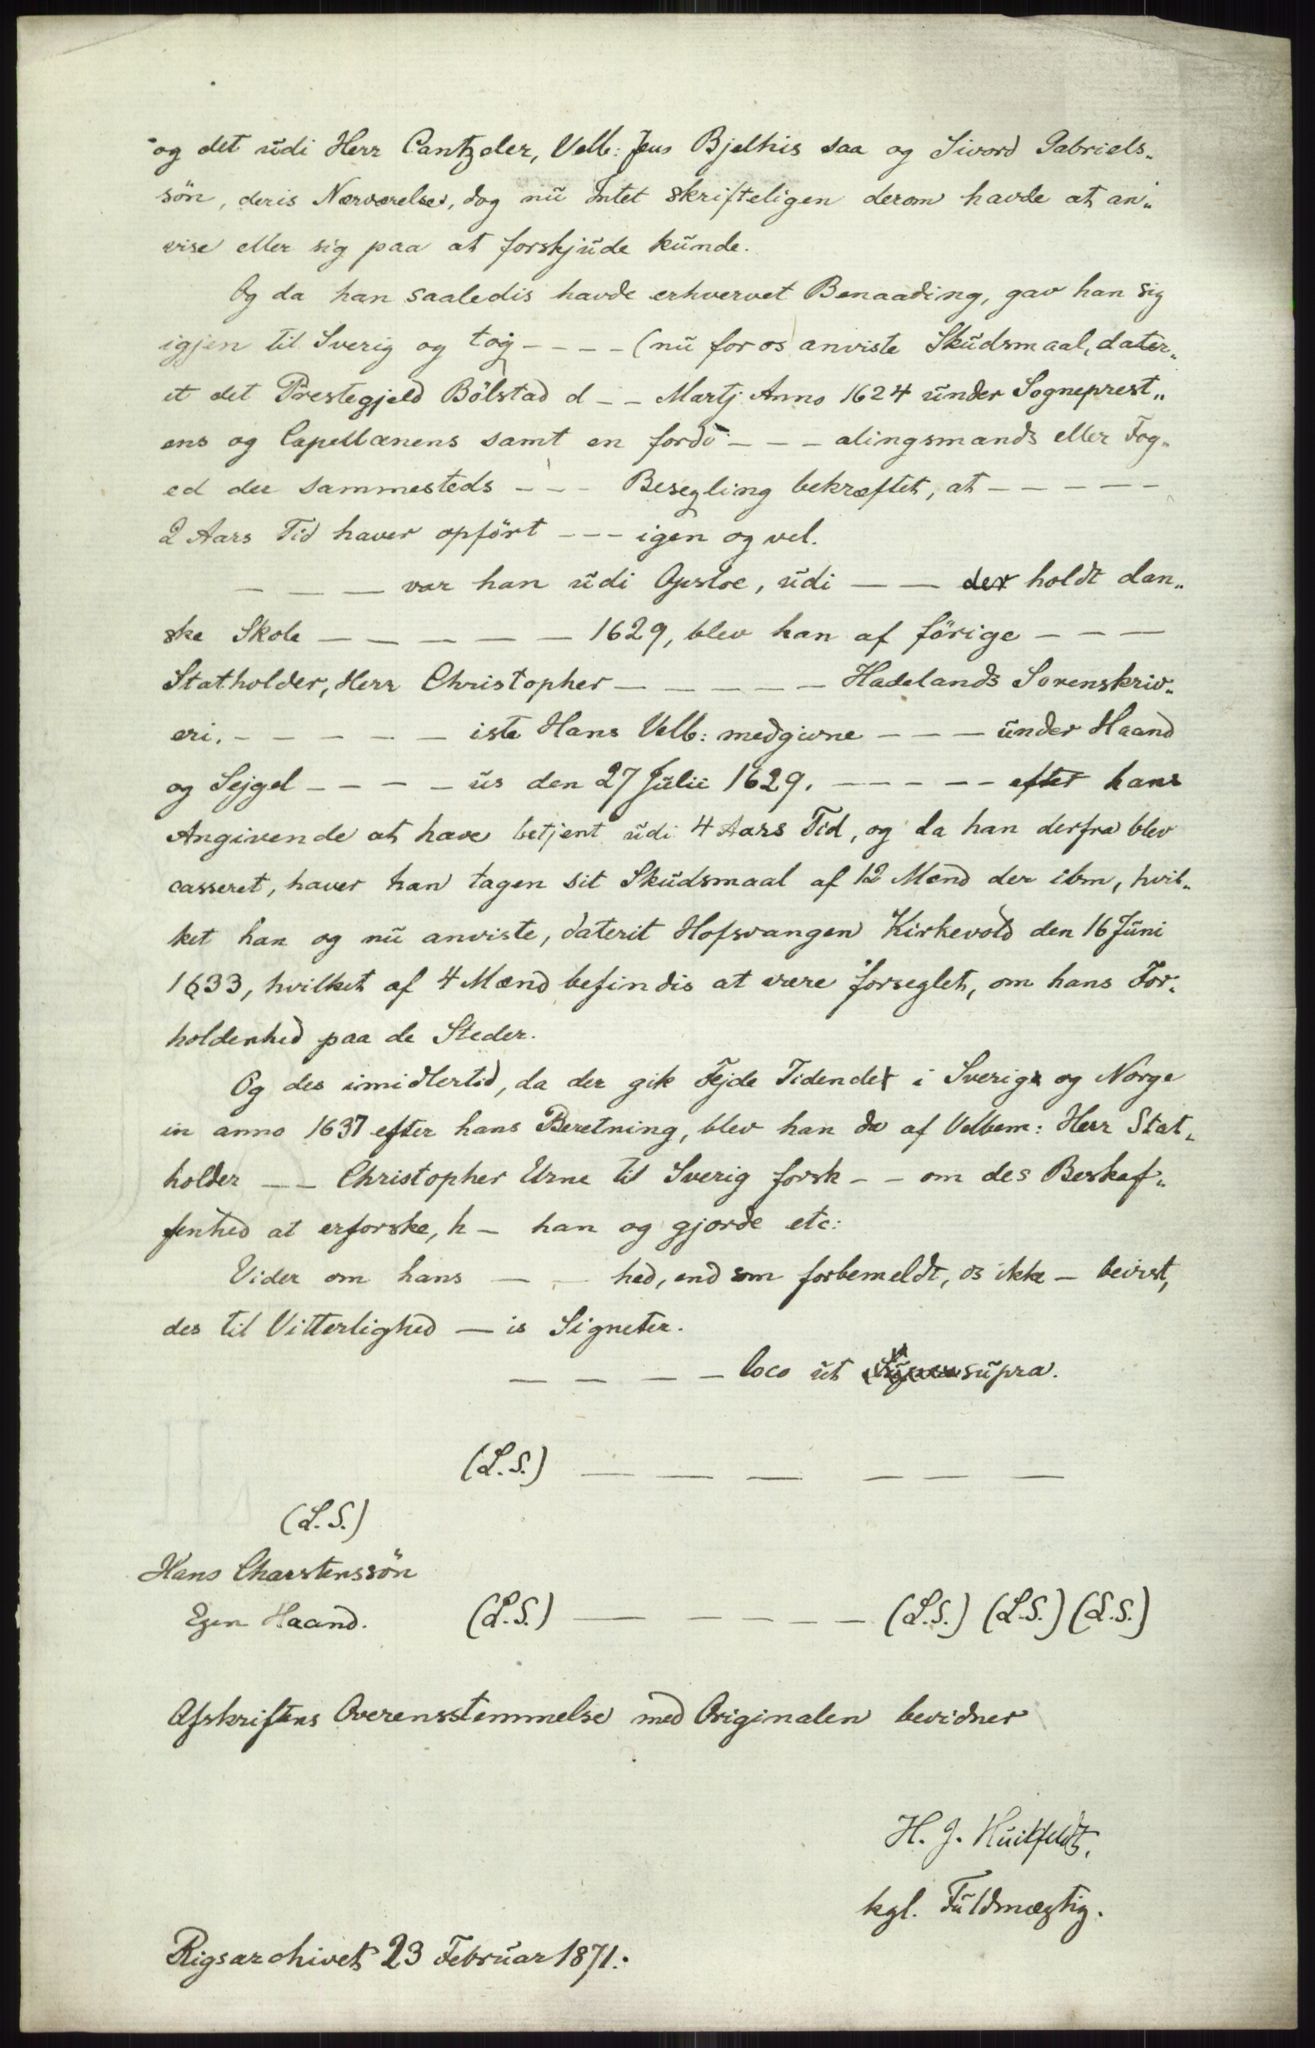 og det udi Herr Cantzeler, Velb: Jens Bjelkis saa og Sivord Gabriels„
søn, deris Nærværelse, dog nu Intet skrifteligen derom havde at an„
vise eller sig paa at forskjude kunde.
Og da han saaledis havde erhvervet Benaading, gav han sig
igjen til Sverig og tog – – – – (nu for os anviste Skudsmaal, dater„
et det Prestegjeld Bölstad d – – Martj Anno 1624 under Sogneprest„
ens og Capellanens samt en fordo – – – alingsmands eller Fog„
ed der sammesteds – – – Besegling bekræftet, at – – – – –
2 Aars Tid haver opført – – – igen og vel.
– – – var han udi Opsloe, udi – – der holdt dan„
ske Skole – – – – – – 1629, blev han af förige – – –
Statholder, Herr Christopher – – – – – Hadelands Sorenskriv„
eri. – – – – – iste Hans Velb: medgivne – – – under Haand
og Sejgel – – – – us den 27 Julii 1629. – – – – – efter hans
Angivende at have betjent udi 4 Aars Tid, og da han derfra blev
casseret, haver han tagen sit Skudsmaal af 12 Mænd der ibm, hvil„
ket han og nu anviste, daterit Hofsvangen Kirkevold den 16 Juni
1633, hvilket af 4 Mænd befindis at være forseglet, om hans For„
holdenhed paa de Steder.
Og des imidlertid, da der gik Fejde Tidender i Sverig og Norge
in anno 1637 efter hans Beretning, blev han da af Velbem: Herr Stat„
holder – – Christopher Urne til Sverig forsk – – om des Beskaf„
fenhed at erforske, h – han og gjorde etc:
Vider om hans – – hed, end som forbemeldt, os ikke – bevist,
des til Vitterlighed – is Signeter.
– – – – Loco ut supra.
(L. S.) – – – – – –
(L. S.)
Hans Charstenssön
Egen Haand. (L. S.) – – – – (L. S.) (L. S.) (L. S.)
Afskriftens Overensstemmelse med Originalen bevidner
H. J. Huitfeldt,
kgl. Fuldmægtig.
Rigsarchivet 23 Februar 1871.